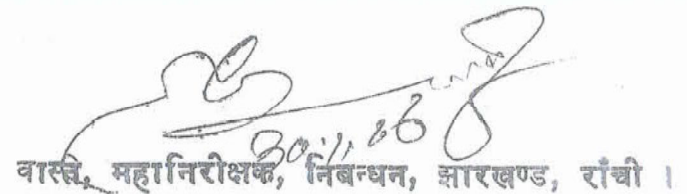 30.11.06
वास्ते, महानिरीक्षक, निबन्धन, झारखण्ड, राँची ।